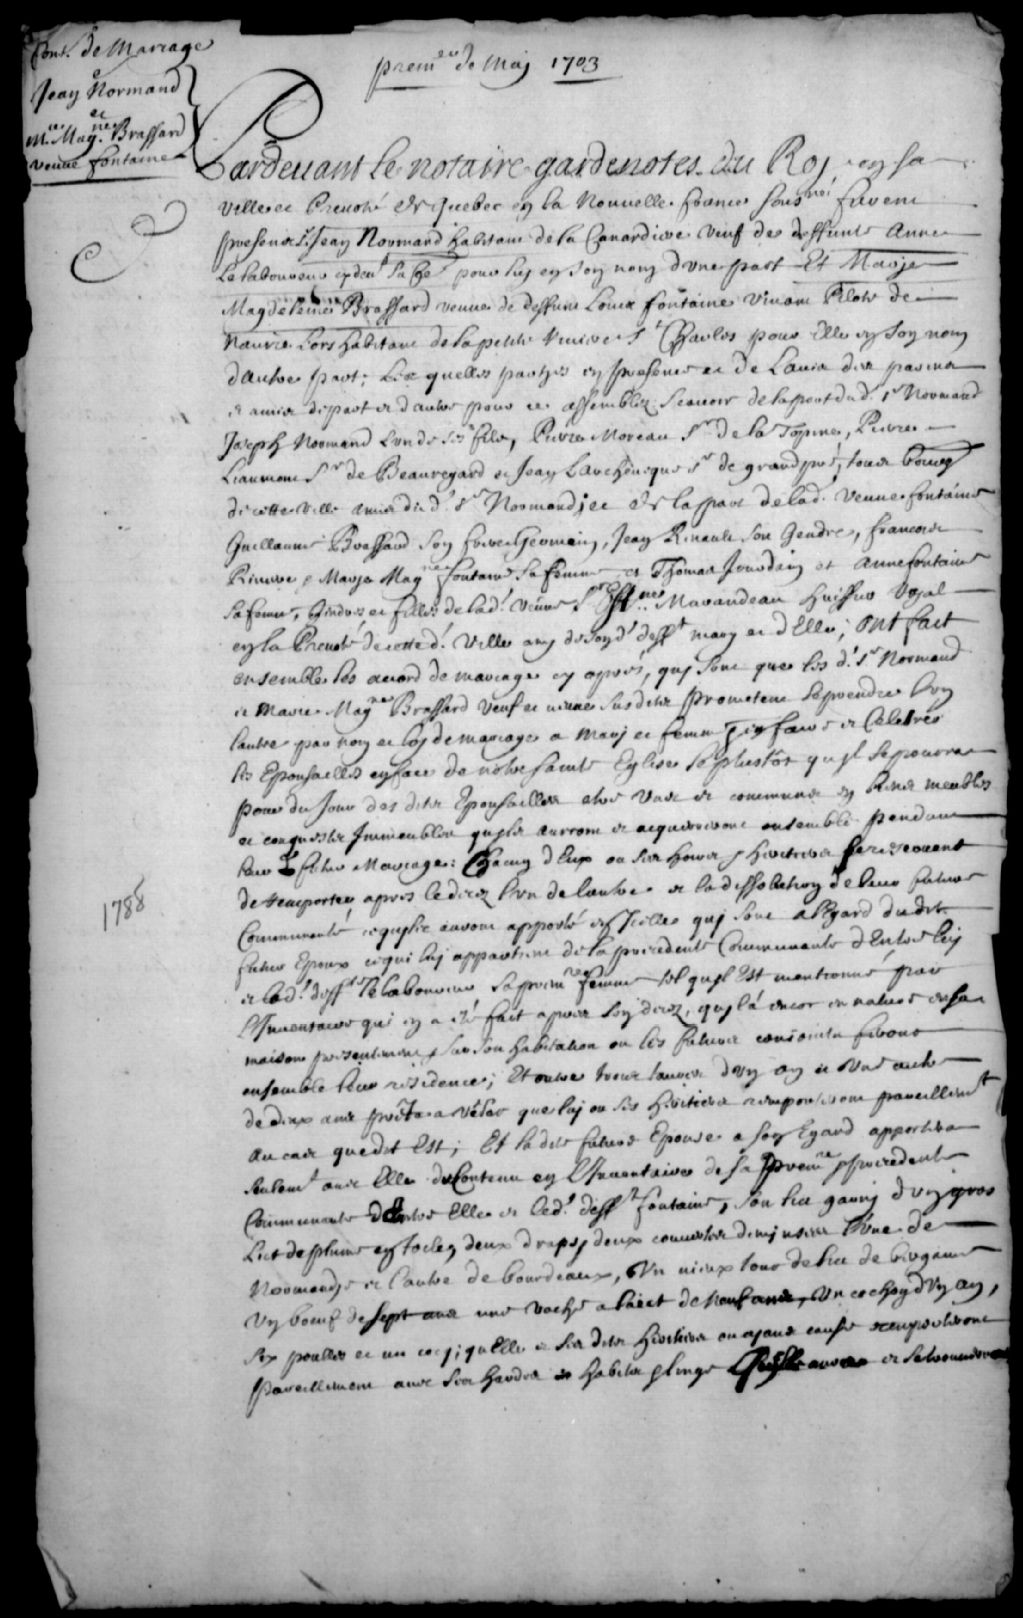 Cont. de Mariage
Jean Normand
et
M.ie Mag.ne Brassard
veuve fontaine
prem.er de Maj 1703
Pardevant le notaire gardenotes du Roj en sa
ville et Prevosté de Quebec en la Nouvelle france sous.né furent
presens Jean Normand habitant de la Canardiere veuf de deffunte Anne
Le laboureur pour luy en son nom d'une part Et Marje
Magdeleine Brassard veuve de deffunt Louis fontaine vivant Pilote de
Navire Lors habitant de la petite Riviere S.t Charles pour Elle en son nom
d'autre part; Les quelles partyes en presence et de Lavis des parens
et amis de part et d'autre pour ce assemblez Scavoir de la part dud. s.r Normand
Joseph Normand L'un de ses fils, Pierre Moreau S.r de la Topine, Pierre
S.r de Beauregard et Jean Larchevesque s.r de grandpré, tous bourg.
de cette ville amis du d. s.r Normand; et de la part de lad. veuve fontaine
Guillaume Brassard son frere Germain, Jean Renault son Gendre, francois
Riviere & Marje Mag.ne fontaine sa femme et Thomas Jourdain et Anne fontaine
sa femme, Gendres et filles de lad. veuve Marandeau huissier Royal
en la Prevosté de cette d. ville amj de son d. deff.t marj et d'Elle; ont fait
ensemble les acord de mariage cy apres, quj sont que les d. s.r Normand
et Marie Mag.ne Brassard veuf et veuve susdits prometent se prendre L'un
l'autre par nom et loy de mariage a marj et femme en faire et Celebrer
les Epousailles en face de notre sainte Eglise le plustôt qu'jl se pourra
pour du Jour des dites Epousailles etre uns et communs en biens meubles
et conquests Immeubles qu'jls auront et acquereront ensemble pendant
leur futur Mariage: Chacun d'Eux ou ses hoirs & heritiers se reservent
de remporter apres le deces l'un de l'autre et la dissolution de leur future
Communauté ce qu'jls auront apporté en Jcelle quj sont a l'Egard du dit
futur Epoux ce qui luj appartient de la precedente Communauté d'Entre luj
et lad. deff.te le laboureur sa prem.re femme tel qu'jl Est mentionné par
l'Inventaire qui en a été fait apres son deces, qu'jl a encor en nature en sa
maison presentement & sur son habitation ou les futurs conjoints feront
ensemble leur residence; Et outre trois taures d'un an et une autre
de deux ans que luj ou ses heritiers remporteront pareillem.t
au cas que dit Est; Et la dite future Epouse a son Egard apportera
seulem.t avec Elle du Contenu en l'Inventaire de sa prem.re precedente
Communauté d'Entre Elle et led. deff.t fontaine, son lict garnj d'un gros
Lict de plume deux draps deux couvertes l'une de
Normandje et l'autre de bourdeaux, Un vieux tour de lict de bergame
Un boeuf de sept ans une vache a laict de neuf ans, Un cochon d'un an,
six poulles et un coq; qu'Elle et ses dits heritiers ou ayans cause remporteront
pareillement avec ses hardes et habits & linge et se trouveront
1788